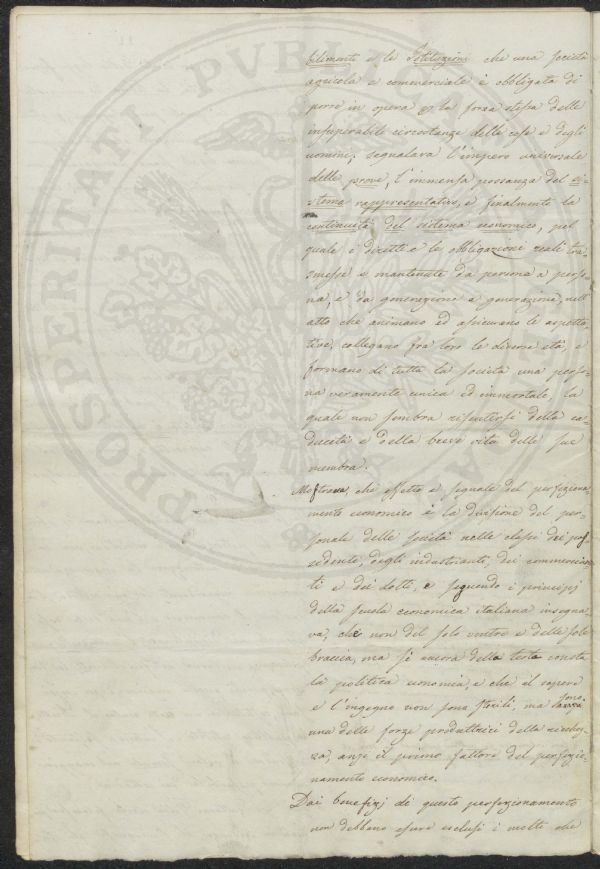 PROSPERITATI PVBLICAE
bilimenti e le Istituzioni che una società
agricola e commerciale è obbligata di
porre in opera per la forza stessa delle
insuperabili circostanze delle cose e degli
uomini; segnalava l'impero universale
delle prove, l'immensa possanza del si-
stema rappresentativo, e finalmente la
continuità del sistema economico, pel
quale i diritti e le obbligazioni reali tra-
smesse e mantenute da persona a perso-
na, e da generazione a generazione, nell'
atto che animano ed assicurano le aspetta-
tive, collegano fra loro le diverse età, e
formano di tutta la società una perso-
na veramente unica ed immortale, la
quale non sembra risentirsi della ca-
ducità e della breve vita delle sue
membra.
Mostrava, che effetto e segnale del perfeziona-
mento economico è la divisione del per-
sonale delle società nelle classi dei pos-
sidenti, degli industrianti, dei commercian-
ti e dei dotti, e seguendo i principj
della scuola economica italiana insegna-
va, che non del solo ventre e delle sole
braccia, ma sì ancora della testa consta
la politica economia, e che il sapere
e l'ingegno non sono sterili, ma sono
una delle forze produttrici della ricchez-
za, anzi il primo fattore del perfezio-
namento economico.
Dai benefizj di questo perfezionamento
non debbono essere esclusi i molti che